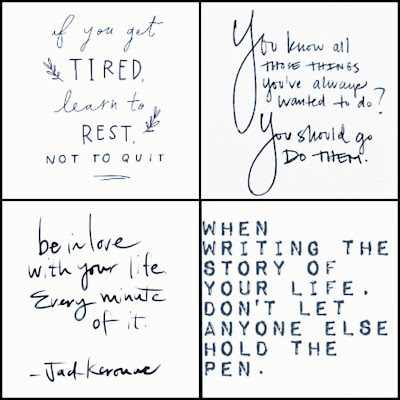 if you get
TIRED,
learn to
REST,
NOT TO QUIT
You know all
THOSE THINGS
you've always
wanted to do?
You should go
DO THEM.
be in love
with your life.
Every minute
of it.
- Jack Kerouac
WHEN
WRITING THE
STORY OF
YOUR LIFE,
DON'T LET
ANYONE ELSE
HOLD THE
PEN.